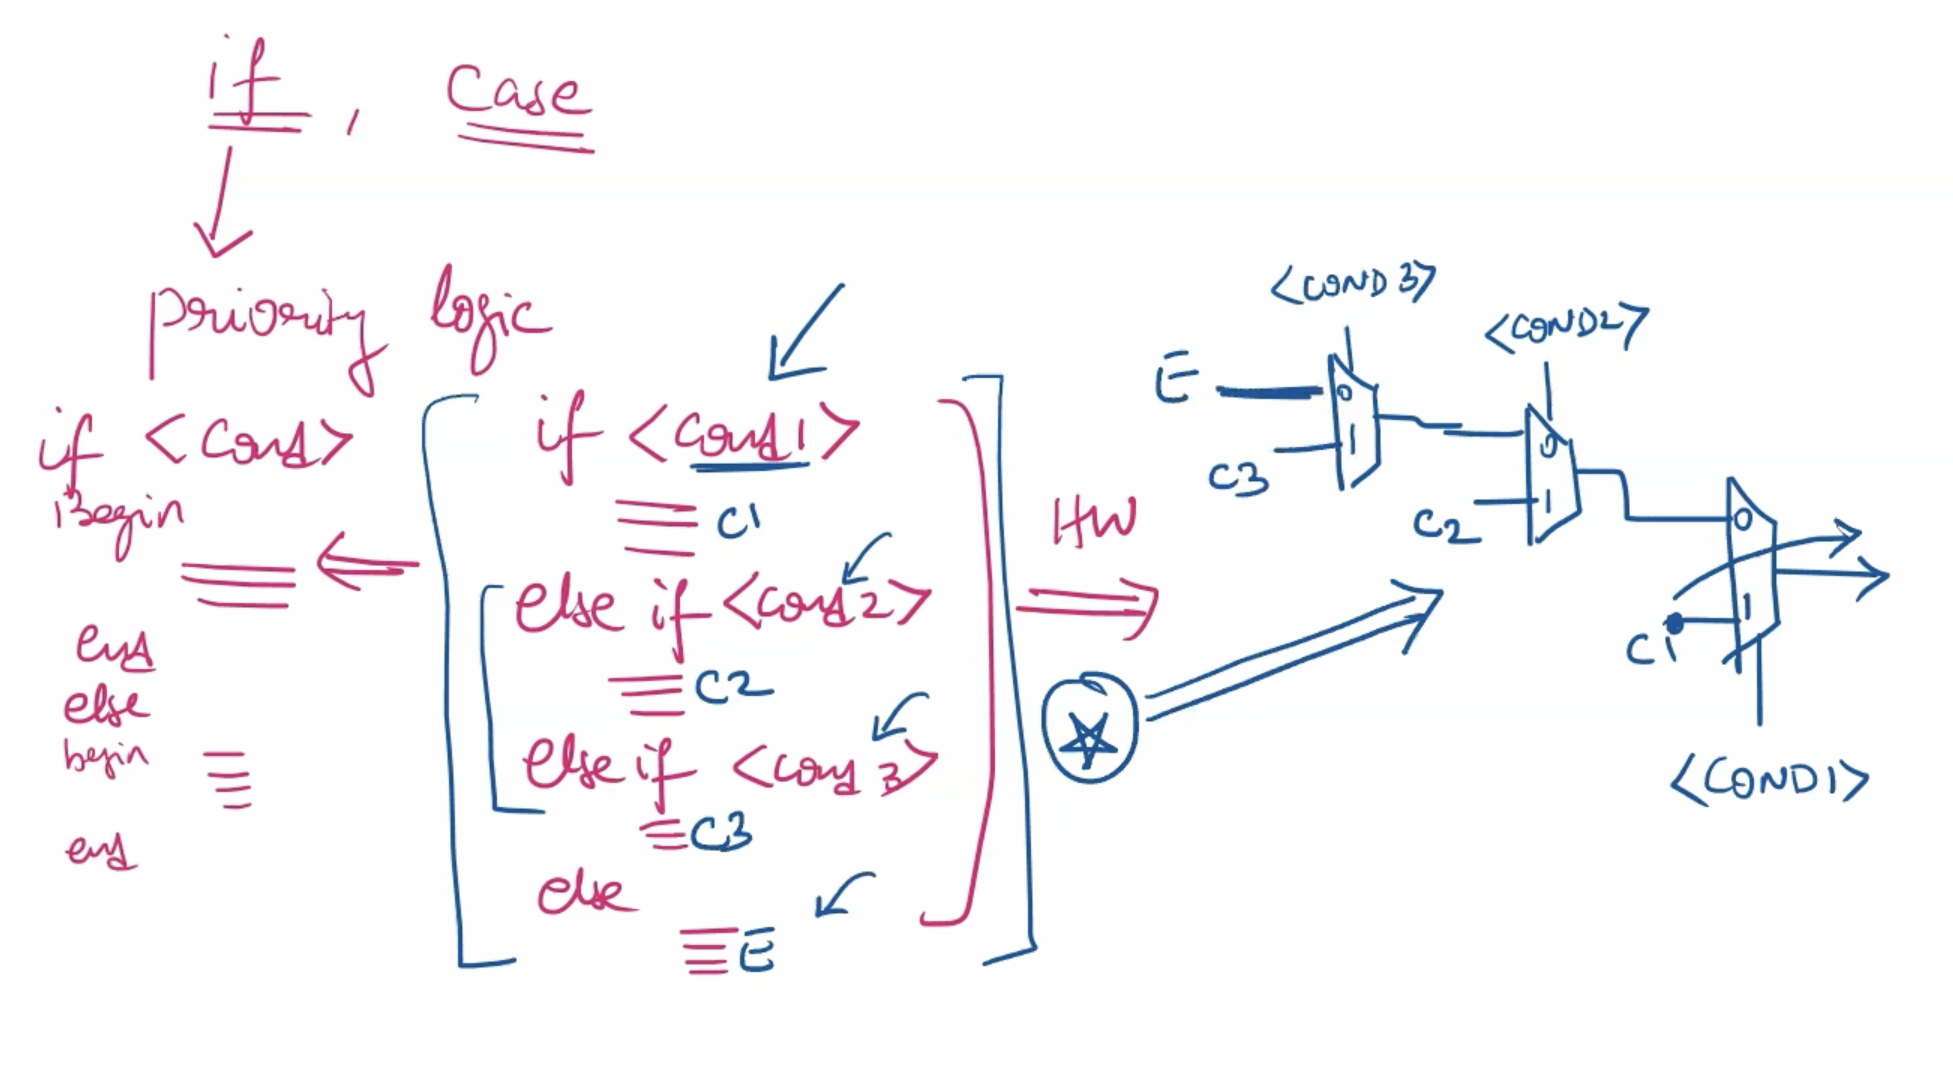 if , Case
priority logic
if <Cond>
Begin
end
else
begin
end
if <Cond 1>
C1
else if <Cond 2>
C2
else if <Cond 3>
C3
else
E
HW
<COND 3>
E
0
1
C3
<COND2>
0
1
C2
0
1
C1
<COND1>